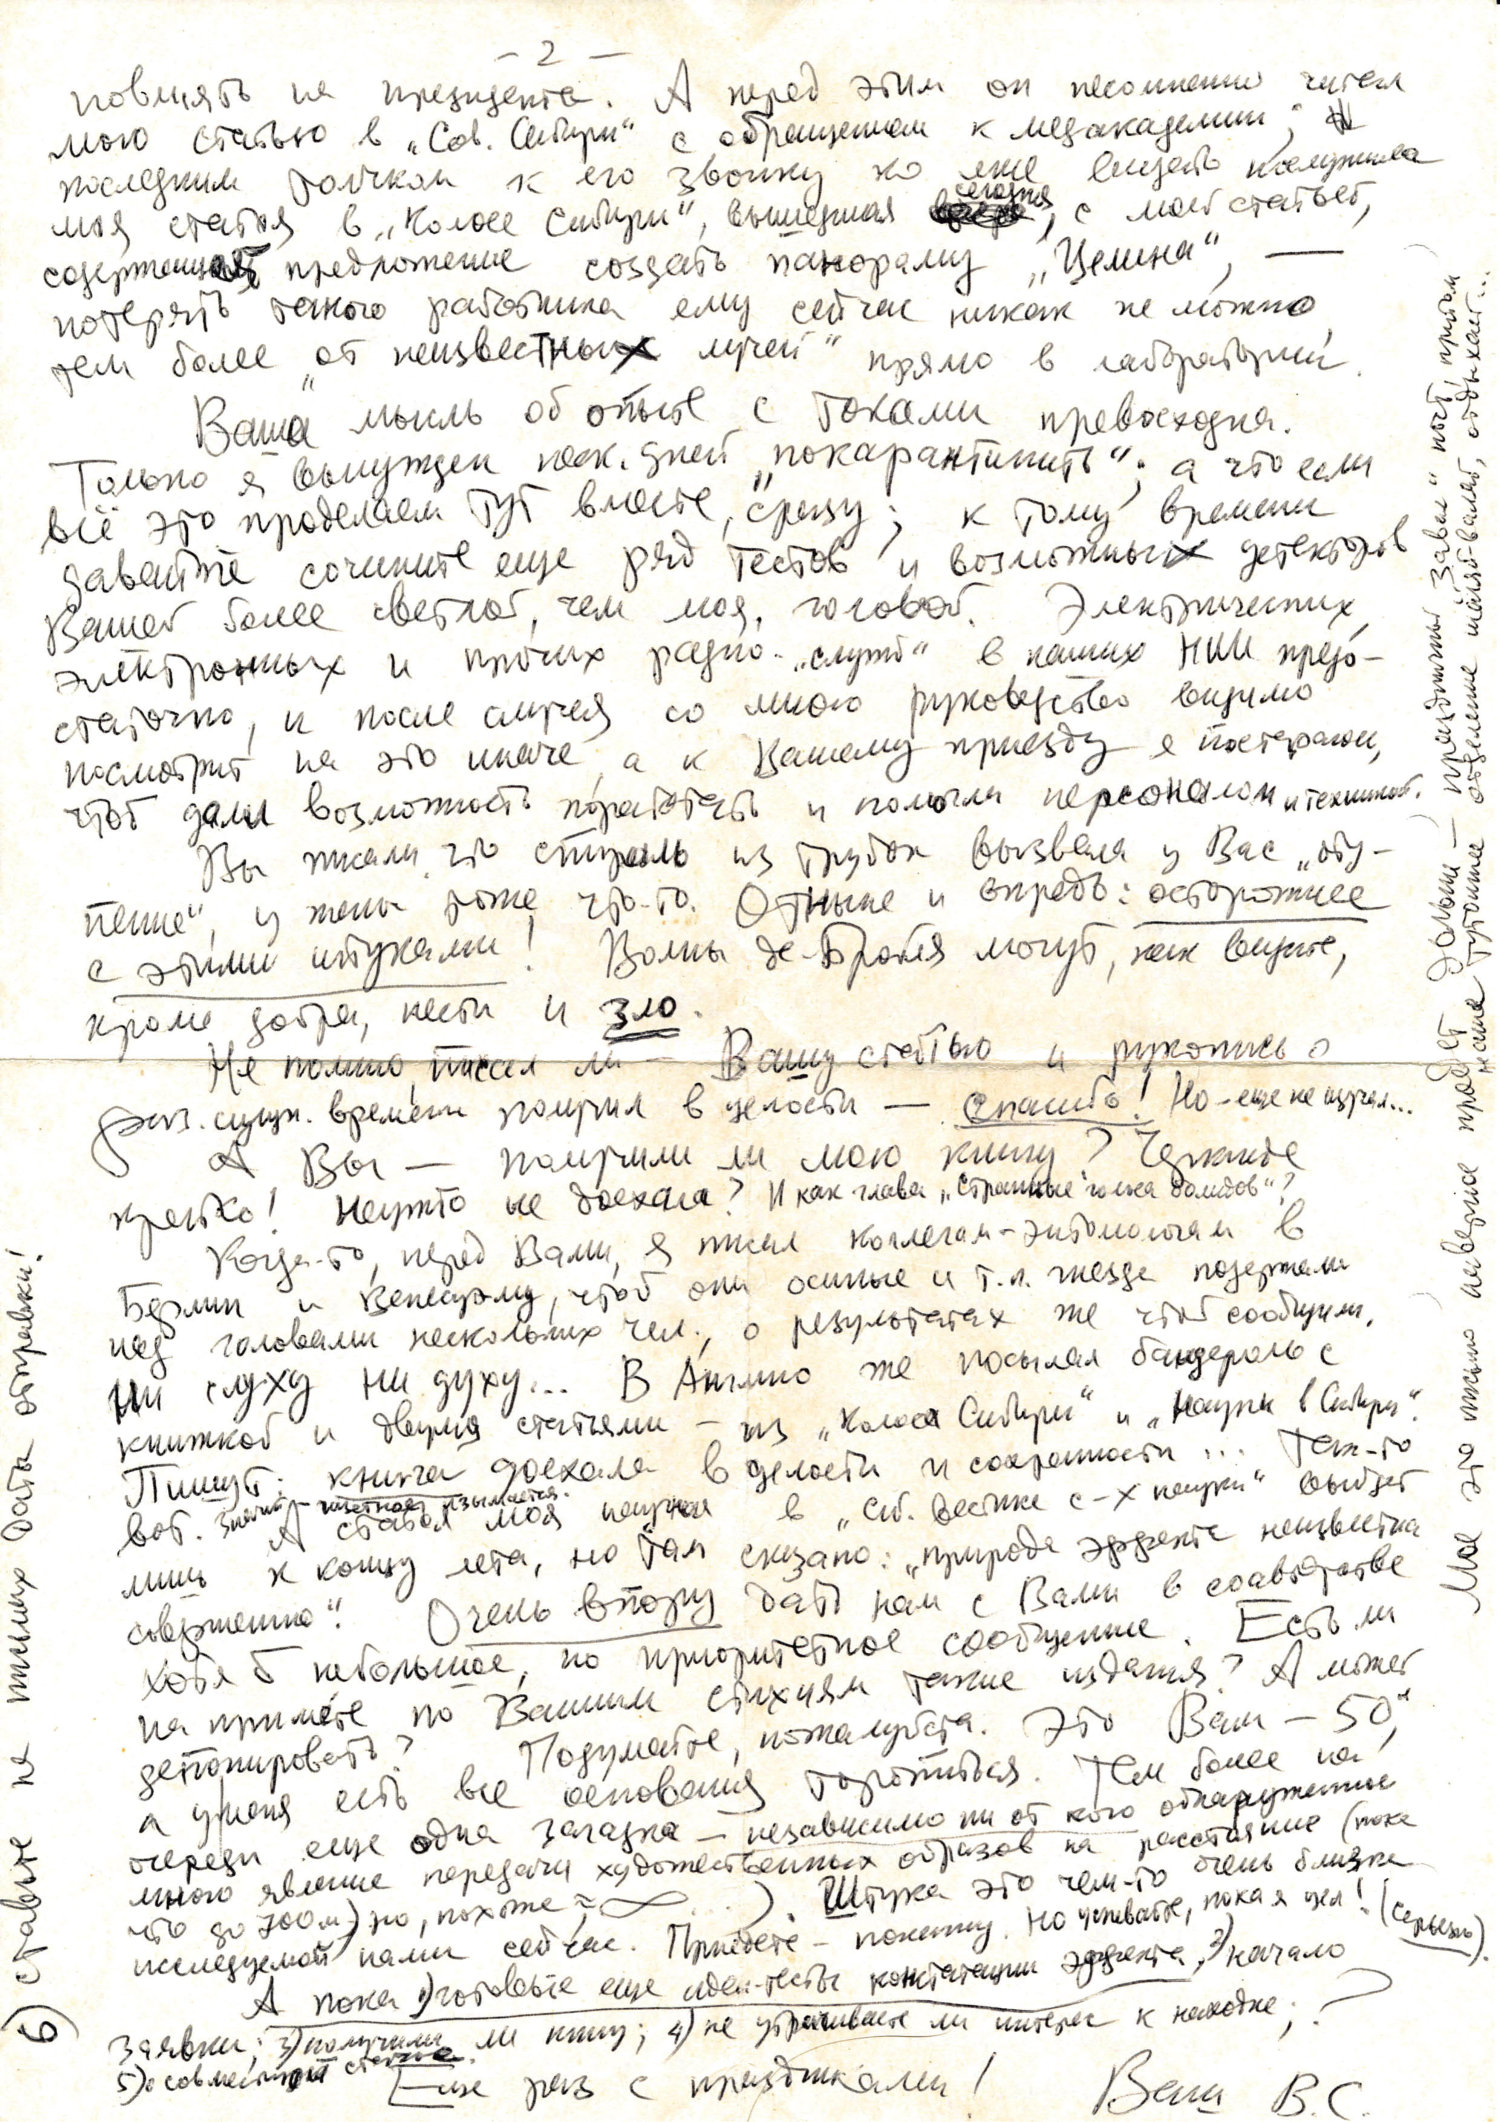 – 2 –
повлиять на президента. А перед этим он несомненно читал
мою статью в „Сов. Сибири“ с обращением к медакадемии;
последним толчком к его звонку ко мне видать послужила
моя статья в „Колосе Сибири“, вышедшая сегодня, с моей статьёй,
содержащей предложение создать панораму „Целина“, —
потерять такого работника ему сейчас никак не можно,
тем более „от неизвестных лучей“ прямо в лаборатории.
Ваша мысль об опыте с токами превосходна.
Только я вынужден неск. дней „покарантинить“; а что если
всё это проделаем тут вместе, сразу; к тому времени
давайте сочините еще ряд тестов и возможных детекторов
Вашей более светлой, чем моя, головой. Электрических,
электронных и прочих радио-„служб“ в наших НИИ предо-
статочно, и после случая со мною руководство видимо
посмотрит на это иначе, а к Вашему приезду я постараюсь,
чтоб дали возможность поработать и помогли персоналом и техникой.
Вы писали, что спираль из трубок вызвала у Вас „оту-
пение“, у жены тоже что-то. Отныне и впредь: осторожнее
с этими штуками! Волны де-Бройля могут, как видите,
кроме добра, нести и зло.
Не помню, писал ли – Вашу статью и рукопись о
физ. сущн. времени получил в целости — спасибо! Но – еще не изучал...
А Вы — получили ли мою книгу? Чуждые
крепко! Неужто не доехала? И как глава „Странные голоса болидов“?
Когда-то, перед Вами, я писал коллегам-энтомологам в
Берлин и Венесуэлу, чтоб они осиные и т.п. гнезда подержали
над головами нескольких чел., о результатах же чтоб сообщили.
Ни слуху ни духу... В Англию же посылал бандероль с
книжкой и двумя статьями – из „Колоса Сибири“ и „Науки в Сибири“.
Пишут: книга доехала в целости и сохранности... Так-то
вот. Значит – изымается.
А статья моя научная в „Сиб. вестнике с-х науки“ выйдет
лишь к концу лета, но там сказано: „природа эффекта неизвестна
совершенно“. Очень впору дать нам с Вами в соавторстве
хотя б небольшое, но приоритетное сообщение. Есть ли
на примете по Вашим стихиям такие издания? А может
депонировать? Подумайте, пожалуйста. Это Вам – 50%,
а у меня есть все основания торопиться. Тем более на
очереди еще одна загадка – независимо ни от кого обнаруженное
мною явление передачи художественных образов на расстояние (пока
что до 700 м) но, похоже, ≈ ∞ ...). Штука это чем-то очень близка
исследуемой нами сейчас. Приедете – покажу. Но успевайте, пока я цел! (Серьезно).
А пока 1) готовьте еще идеи-тесты констатации эффекта; 2) начало
заявки; 3) получили ли книгу; 4) не утрачиваете ли интерес к находке; ?
5) о совместной статье.
Еще раз с праздниками! Ваш В.С.
6) ставьте на письмах даты отправки!
Мое это письмо наверное пройдет дольше — праздничный „завал“ почт, притом
наше тутошнее отделение отдыхает...